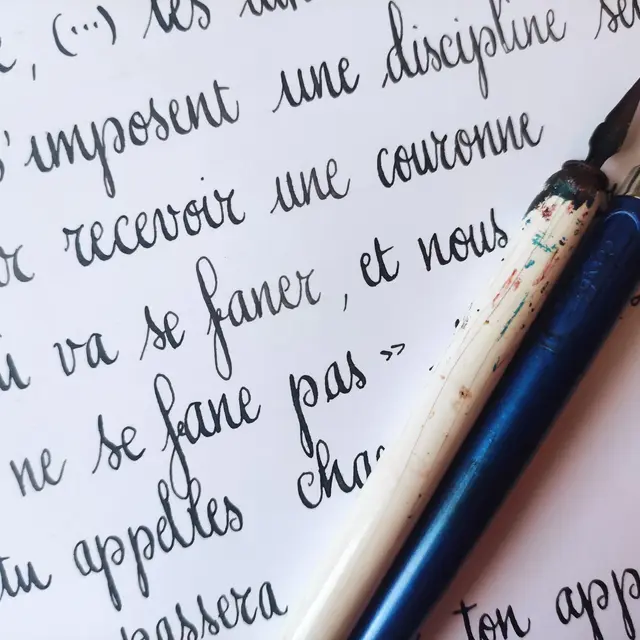 (...) les
s'imposent une discipline
recevoir une couronne
va se faner, et nous
ne se fane pas »
tu appelles
passera
ton app